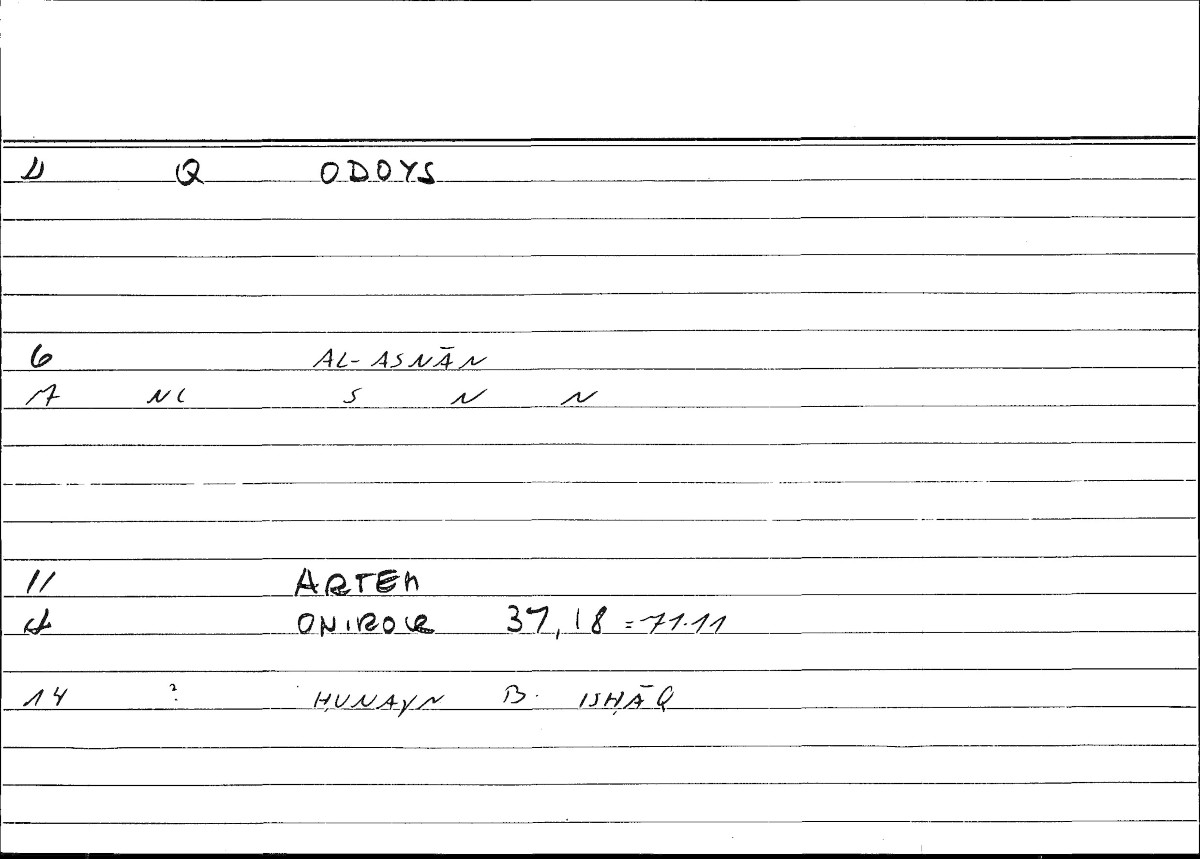 D Q ODOYS
6 AL-ASNĀN
7 NC S N N
11 ARTEM
d ONIROCR 37,18 =71.11
14 ? ḤUNAYN B. ISḤĀQ